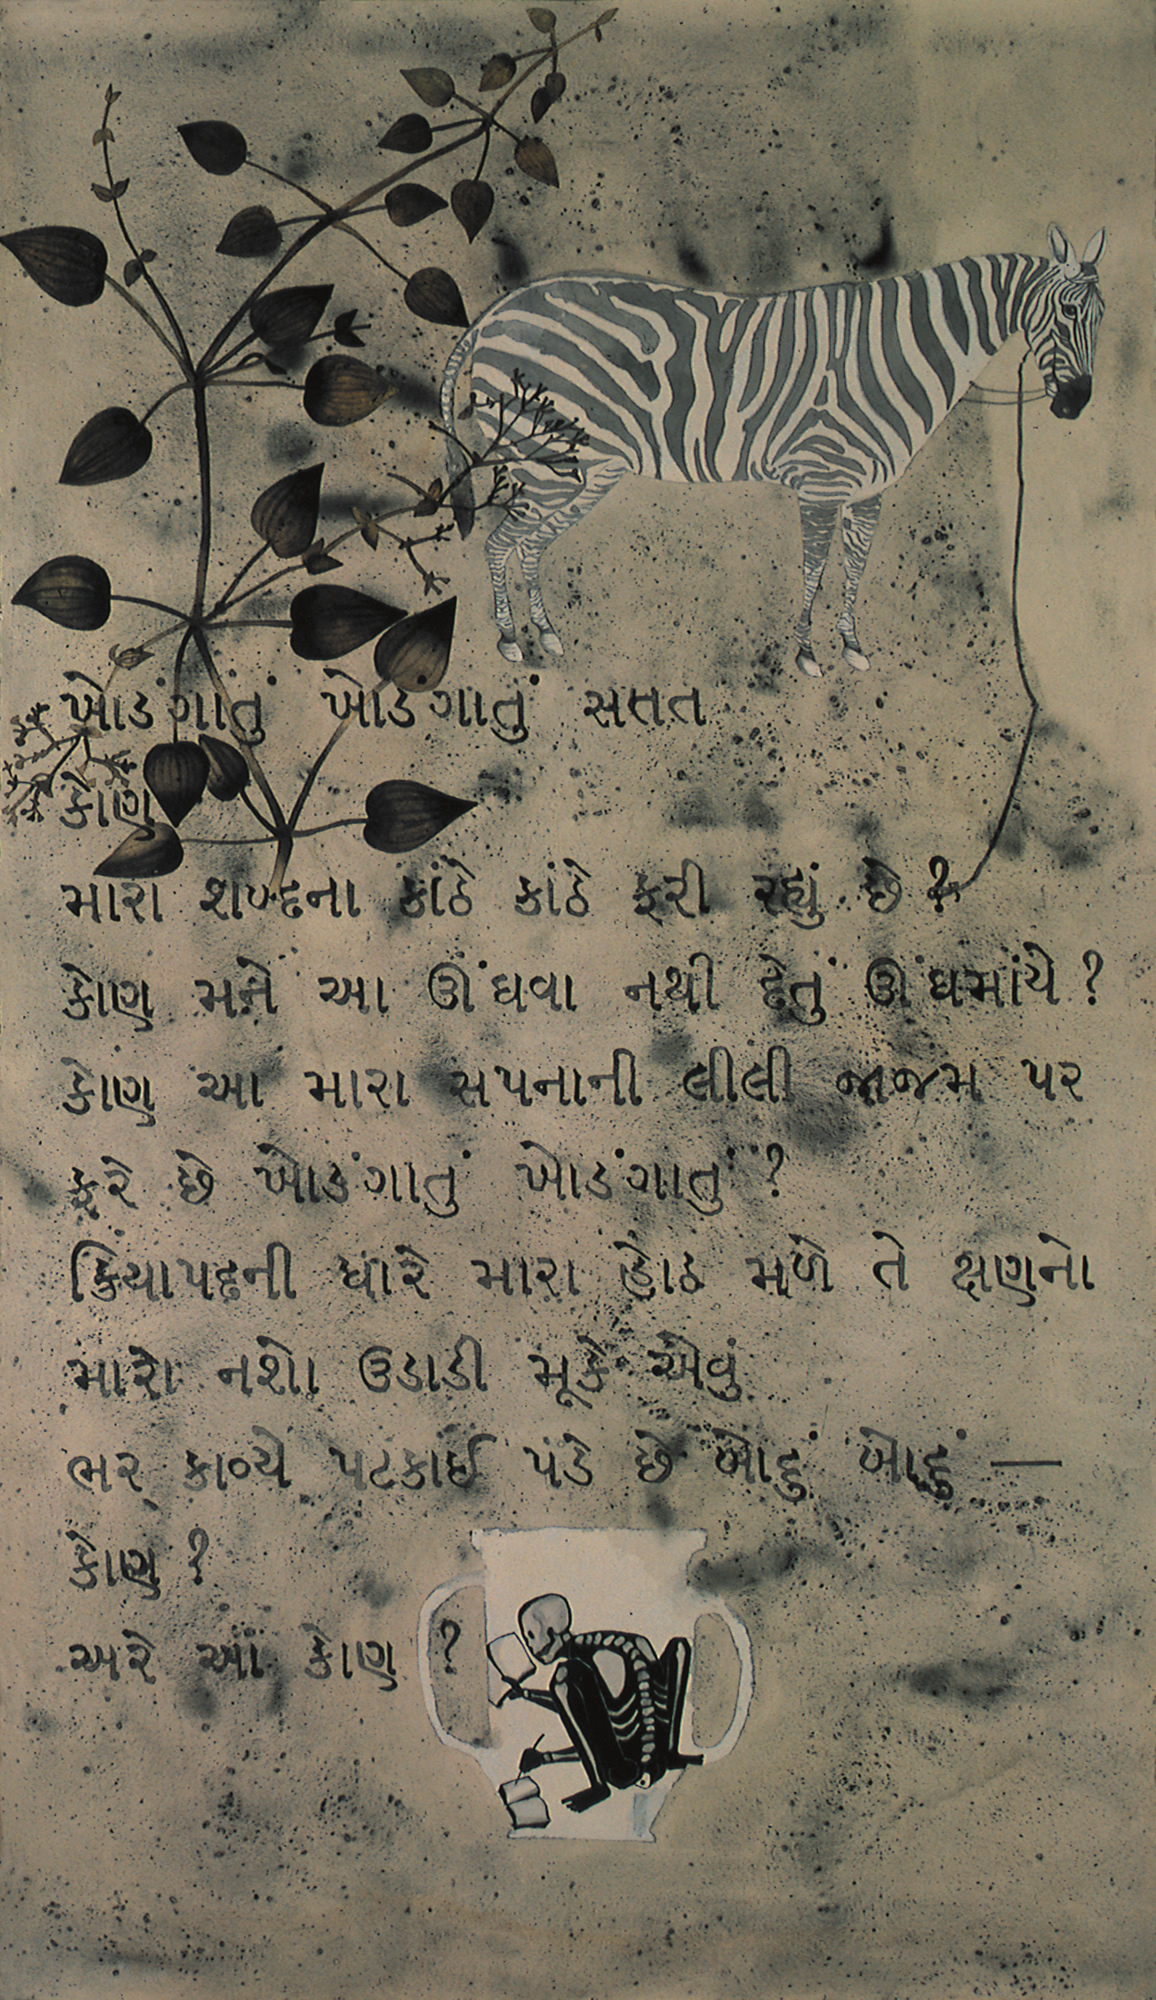 ખોડંગાતું ખોડંગાતું સતત
કોણ
મારા શબ્દના કાંઠે કાંઠે ફરી રહ્યું છે ?
કોણ મને આ ઊંઘવા નથી દેતું ઊંઘમાંયે ?
કોણ આ મારા સપનાની લીલી જાજમ પર
ફરે છે ખોડંગાતું ખોડંગાતું ?
ક્રિયાપદની ધારે મારા હોઠ મળે તે ક્ષણનો
મારો નશો ઉડાડી મૂકે એવું
ભર કાવ્યે પટકાઈ પડે છે બોદું બોદું —
કોણ ?
અરે આ કોણ ?